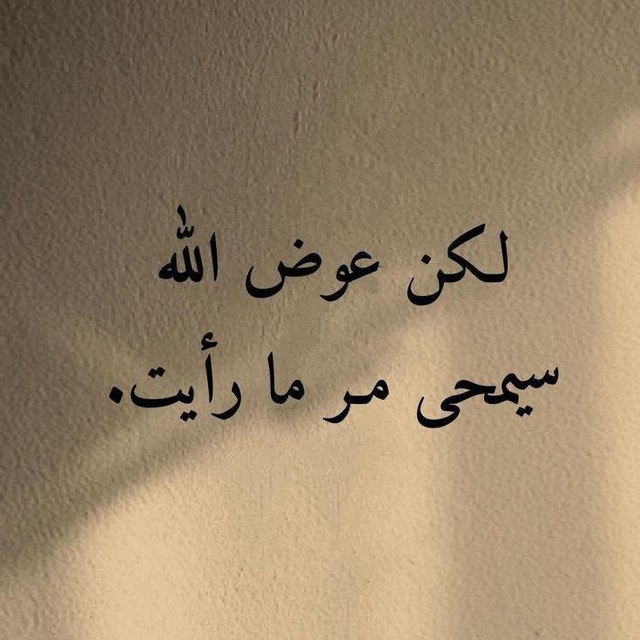 لكن عوض الله
سيمحى مر ما رأيت.